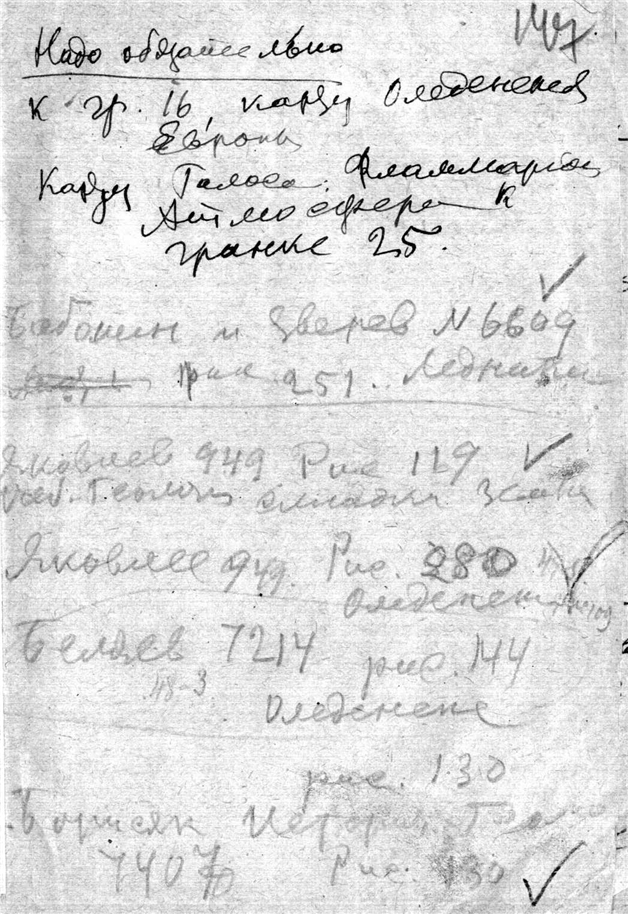 147
Надо обязательно
к гр. 16, карту Оледенения
Европы
Карту Фламмарион
Атмосфера к
гранке 25.
и Зверев N 6609
рис 251. Ледники
Яковлев 949 Рис 119
складки
Яковлев 949. Рис. 280
Оледенение
Беляев 7214 рис. 144
48-3
Оледенение
рис. 130
Борисяк История
7407 Рис. 130